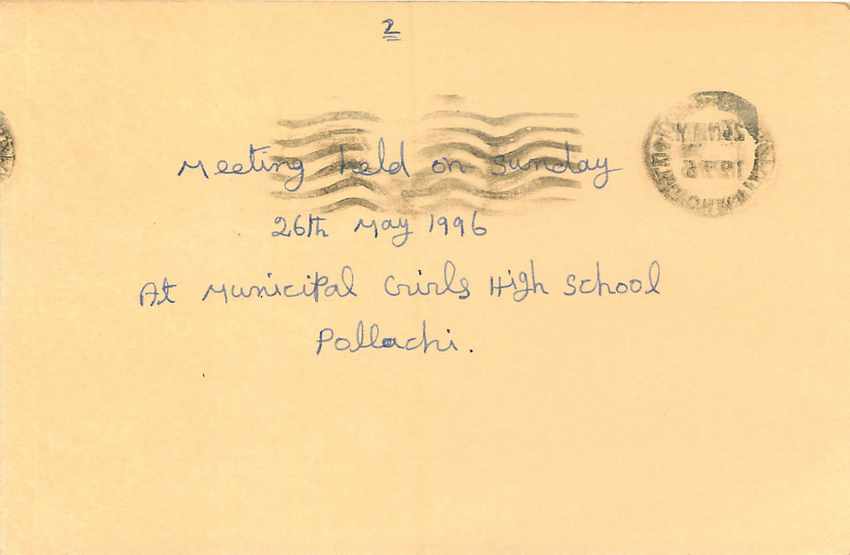 2
Meeting held on Sunday
26th May 1996
At Municipal Girls High School
Pollachi.